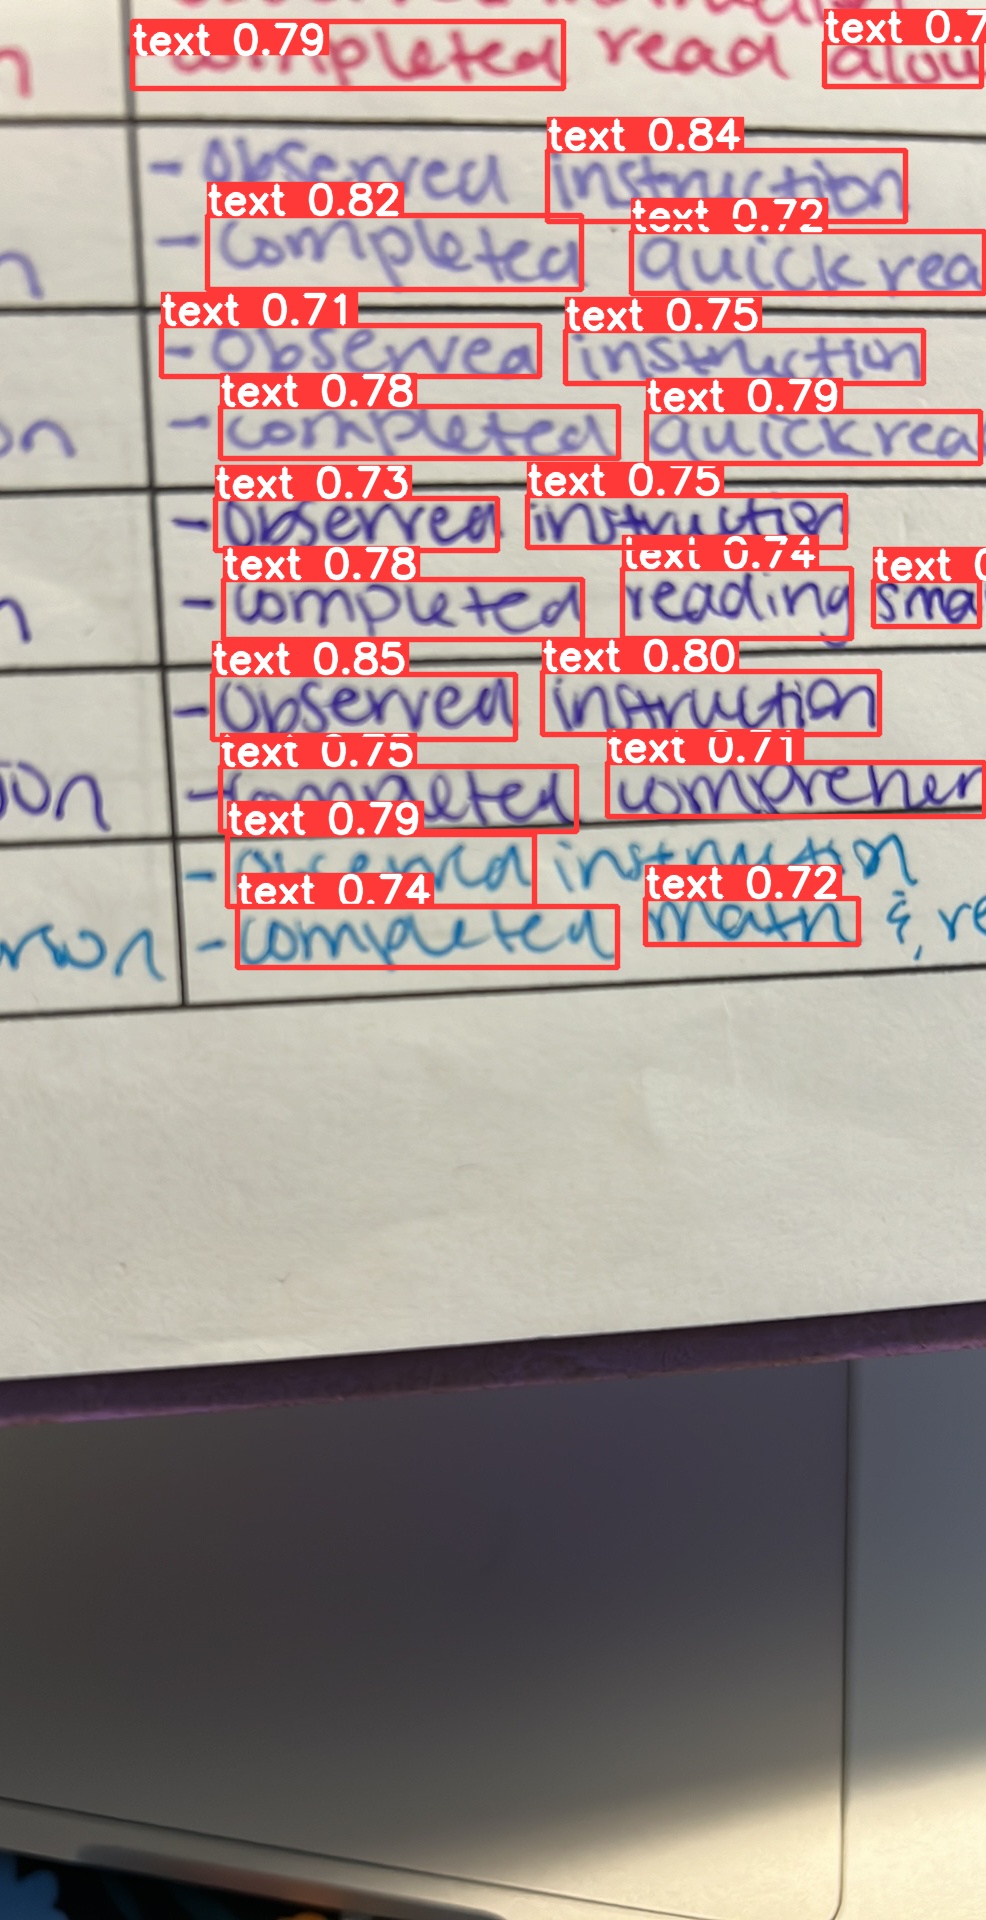 text 0.79 completed read text 0.7 alou
- Observed text 0.84 instruction
text 0.82 - completed text 0.72 quick rea
text 0.71 - Observed text 0.75 instruction
on text 0.78 - completed text 0.79 quick rea
text 0.73 - Observed text 0.75 instruction
text 0.78 - completed text 0.74 reading text 0 sma
text 0.85 - Observed text 0.80 instruction
ion text 0.75 - completed text 0.71 comprehen
text 0.79 - observed instruction
rson text 0.74 - completed text 0.72 math &, re